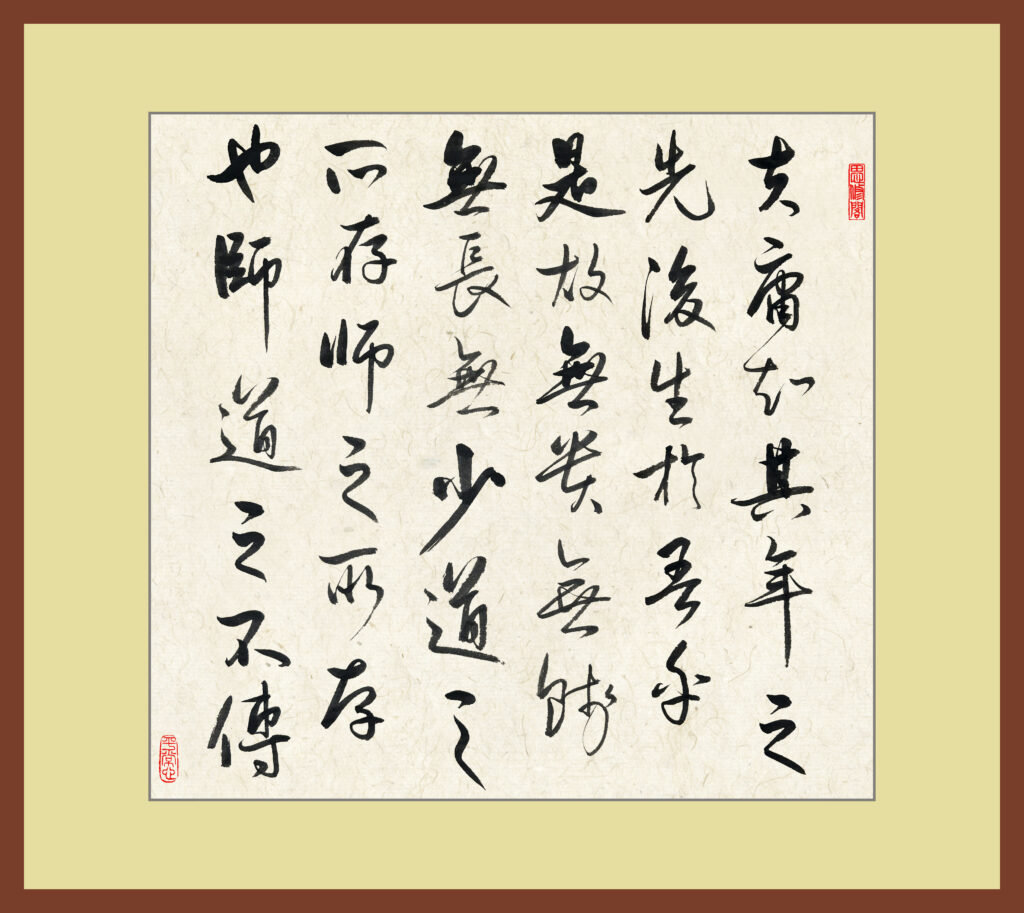 思修閣
夫庸知其年之
先後生於吾乎
是故無貴無賤
無長無少道之
所存師之所存
也師道之不傳
平常心